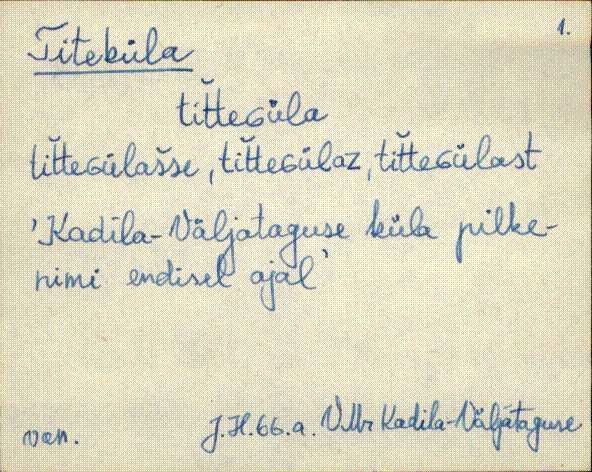 1.
Titeküla
tit̆teGüla
tit̆teGülašse, tit̆teGülaz, tit̆teGülast
'Kadila-Väljataguse küla pilke-
nimi endisel ajal'
van. J.H.66.a. VMr Kadila-Väljataguse